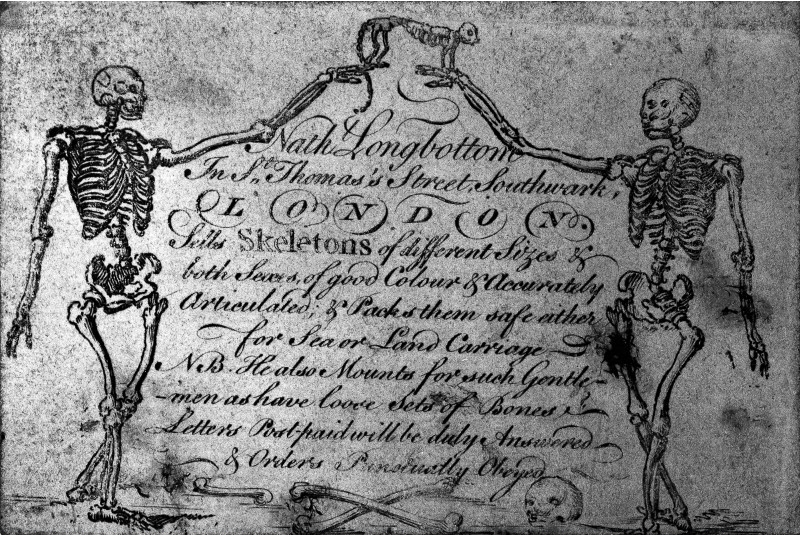 Nath.l Longbottom
In St. Thomas's Street, Southwark,
LONDON.
Sells Skeletons of different Sizes &
both Sexes, of good Colour & Accurately
Articulated; & Packs them safe either
for Sea or Land Carriage
NB. He also Mounts for such Gentle-
-men as have loose Sets of Bones
Letters Post-paid will be duly Answered
& Orders Punctually Obeyed